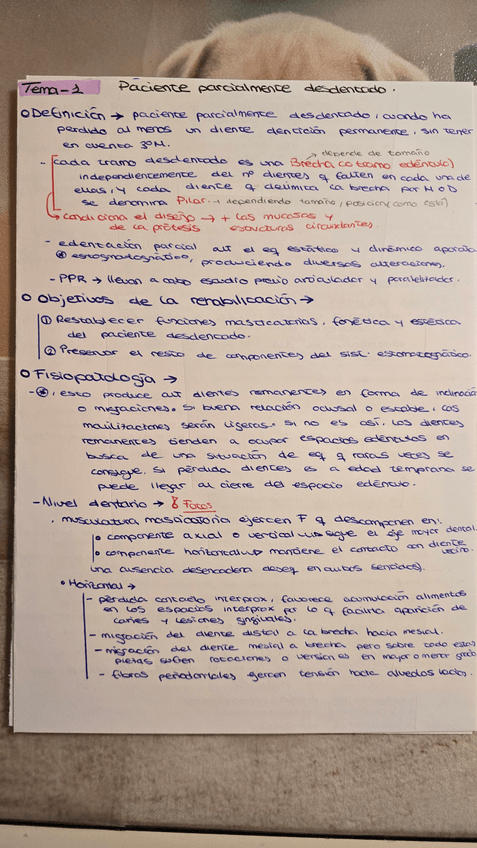 Tema-1 Paciente parcialmente desdentado.
Definición → paciente parcialmente desdentado, cuando ha
perdido al menos un diente dentición permanente, sin tener
en cuenta 3ºM.
→ depende de tamaño
- cada tramo desdentado es una Brecha (o tramo edéntulo)
independientemente del nº dientes q falten en cada una de
ellas, y cada diente q delimita la brecha por M o D
se denomina Pilar → dependiendo tamaño, posición (como está)
→ condiciona el diseño → + las mucosas y
de la prótesis estructuras circundantes.
- edentación parcial alt el eq estático y dinámico aparato
* estomatognático, produciendo diversas alteraciones.
- PPR → llevan a cabo estudio previo articulador y paralelizador.
Objetivos de la rehabilitación →
① Restablecer funciones masticatorias, fonética y estética
del paciente desdentado.
② Preservar el resto de componentes del sist. estomatognático.
Fisiopatología →
- *, esto produce alt dientes remanentes en forma de inclinación
o migraciones. Si buena relación oclusal o estable, las
movilizaciones serán ligeras. Si no es así, los dientes
remanentes tienden a ocupar espacios edéntulos en
busca de una situación de eq q raras veces se
consigue. Si pérdida dientes es a edad temprana se
puede llegar al cierre del espacio edéntulo.
- Nivel dentario → Fotos
. musculatura masticatoria ejercen F q descomponen en:
componente axial o vertical → sigue el eje mayor dental.
componente horizontal → mantiene el contacto con diente vecino.
una ausencia desencadena deseq en ambos sentidos).
Horizontal →
- pérdida contacto interprox, favorece acumulación alimentos
en los espacios interprox por lo q facilita aparición de
caries y lesiones gingivales.
- migración del diente distal a la brecha hacia mesial.
- migración del diente mesial a brecha pero sobre todo estas
piezas sufren rotaciones o versiones en mayor o menor grado
- fibras periodontales ejercen tensión hacia alveolos lados.